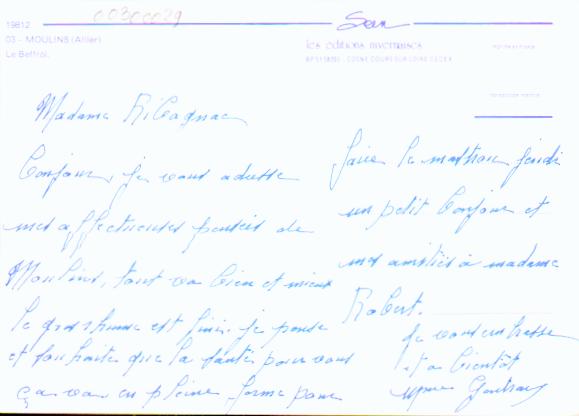 00300029
19812
03 - MOULINS (Allier)
Le Beffroi.
les éditions nivernaises
BP 51 58200 - COSNE COURS SUR LOIRE CEDEX
Madame Ribagnac
Bonjour, je vous adresse
mes affectueuses pensées de
Moulins, tout va bien et mieux
le gros rhume est fini. je pense
et souhaite que la santé pour vous
ça va en pleine forme pour
faire le marathon jeudi
un petit bonjour et
mes amitiés à madame
Robert.
Je vous embrasse
et à bientôt